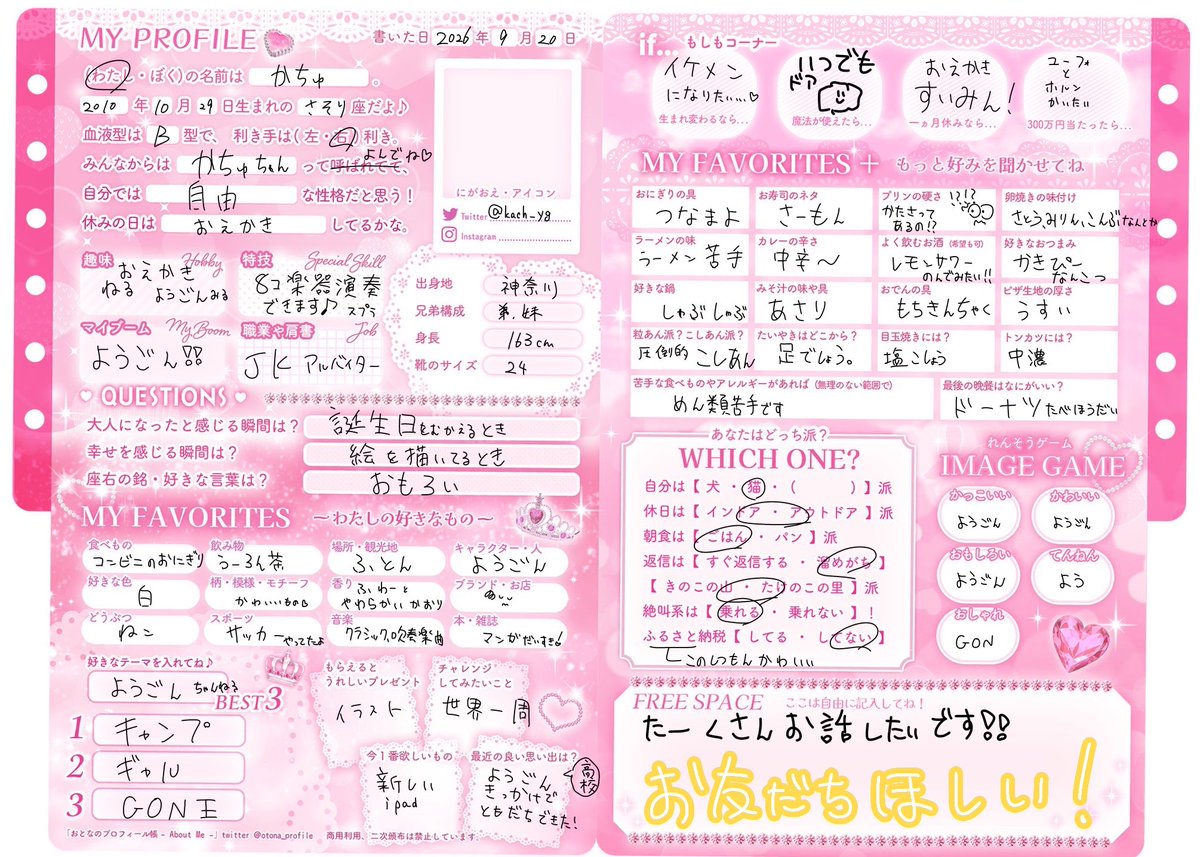 MY PROFILE
書いた日 2026年 9月 20日
(わたし・ぼく)の名前は かちゅ 。
2010年 10月 29日生まれの さそり 座だよ♪
血液型は B 型で、利き手は(左・右)利き。
みんなからは かちゅちゃん って呼ばれてて、よんでね♡
自分では 自由 な性格だと思う!
休みの日は おえかき してるかな。
にがおえ・アイコン
Twitter @kach_y8
Instagram
趣味 Hobby
おえかき
ねる ようごんみる
特技 Special Skill
8コ楽器演奏
できます♪ スプラ
マイブーム My Boom
ようごん!!
職業や肩書 Job
JK アルバイター
出身地 神奈川
兄弟構成 弟.妹
身長 163cm
靴のサイズ 24
QUESTIONS
大人になったと感じる瞬間は? 誕生日をむかえるとき
幸せを感じる瞬間は? 絵を描いてるとき
座右の銘・好きな言葉は? おもろい
MY FAVORITES ～わたしの好きなもの～
食べもの コンビニのおにぎり
飲み物 うーろん茶
場所・観光地 ふとん
キャラクター・人 ようごん
好きな色 白
柄・模様・モチーフ かわいいもの
香り ふわーと
やわらかいかおり
ブランド・お店
どうぶつ ねこ
スポーツ サッカーやってたよ
音楽 クラシック、吹奏楽曲
本・雑誌 マンガだいすき!
好きなテーマを入れてね♪
ようごんちゃんねる
BEST3
1 キャンプ
2 ギャル
3 GON王
もらえると
うれしいプレゼント
イラスト
チャレンジ
してみたいこと
世界一周
今1番欲しいもの
新しい
ipad
最近の良い思い出は?
ようごん
きっかけで
ともだちできた!
高校
「おとなのプロフィール帳 - About Me -」twitter @otona_profile 商用利用、二次頒布は禁止しています。
if... もしもコーナー
イケメン
になりたい...♡
生まれ変わるなら...
いつでも
ドア
魔法が使えたら...
おえかき
すいみん!
一ヵ月休みなら...
ユーフォ
と
ホルン
かいたい
300万円当たったら...
MY FAVORITES + もっと好みを聞かせてね
おにぎりの具 つなまよ
お寿司のネタ さーもん
プリンの硬さ !?!?
かたさって
あるの!?
卵焼きの味付け さとう、みりん、こんぶなんとか
ラーメンの味 ラーメン苦手
カレーの辛さ 中辛～
よく飲むお酒(希望も可) レモンサワー
のんでみたい!!
好きなおつまみ かきぴー
なんこつ
好きな鍋 しゃぶしゃぶ
みそ汁の味や具 あさり
おでんの具 もちきんちゃく
ピザ生地の厚さ うすい
粒あん派?こしあん派? 圧倒的こしあん
たいやきはどこから? 足でしょう。
目玉焼きには? 塩こしょう
トンカツには? 中濃
苦手な食べものやアレルギーがあれば(無理のない範囲で)
めん類苦手です
最後の晩餐はなにがいい?
ドーナツたべほうだい
あなたはどっち派?
WHICH ONE?
自分は【 犬 ・ 猫 ・ ( ) 】派
休日は【 インドア ・ アウトドア 】派
朝食は【 ごはん ・ パン 】派
返信は【 すぐ返信する ・ 溜めがち 】
【 きのこの山 ・ たけのこの里 】派
絶叫系は【 乗れる ・ 乗れない 】!
ふるさと納税【 してる ・ してない 】
このしつもんかわいい
れんそうゲーム
IMAGE GAME
かっこいい ようごん
かわいい ようごん
おもしろい ようごん
てんねん よう
おしゃれ GON
FREE SPACE ここは自由に記入してね!
たーくさんお話したいです!!
お友だちほしい!